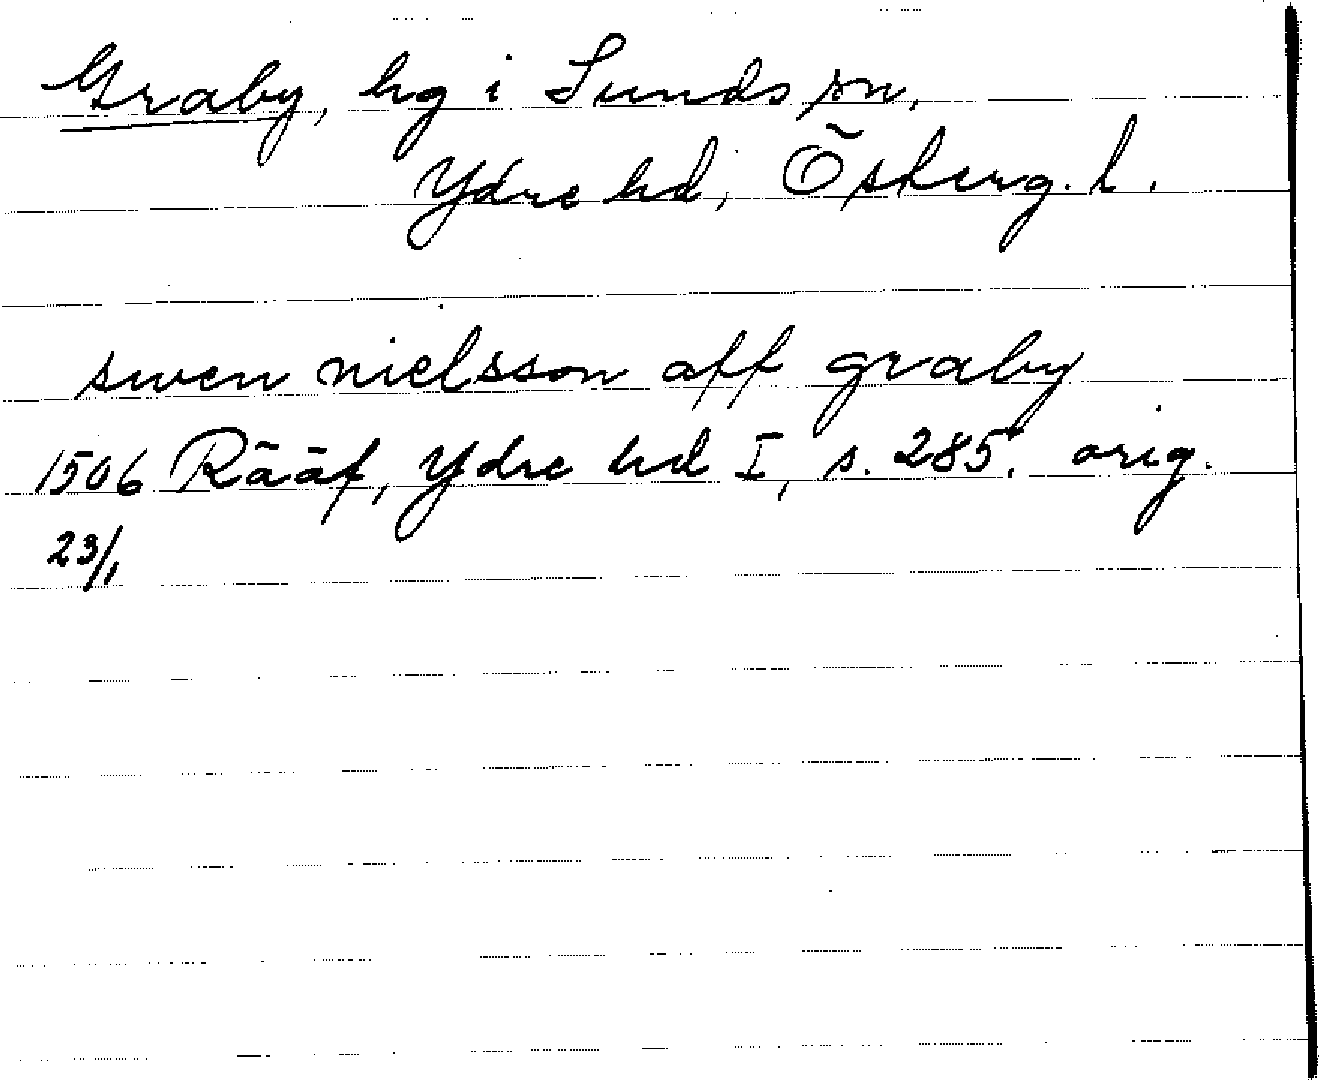 Graby, hg i Sunds sn,
Ydre hd, Österg. l.
swen nielsson aff graby
1506 Rääf, Ydre hd I, s. 285. orig.
23/1